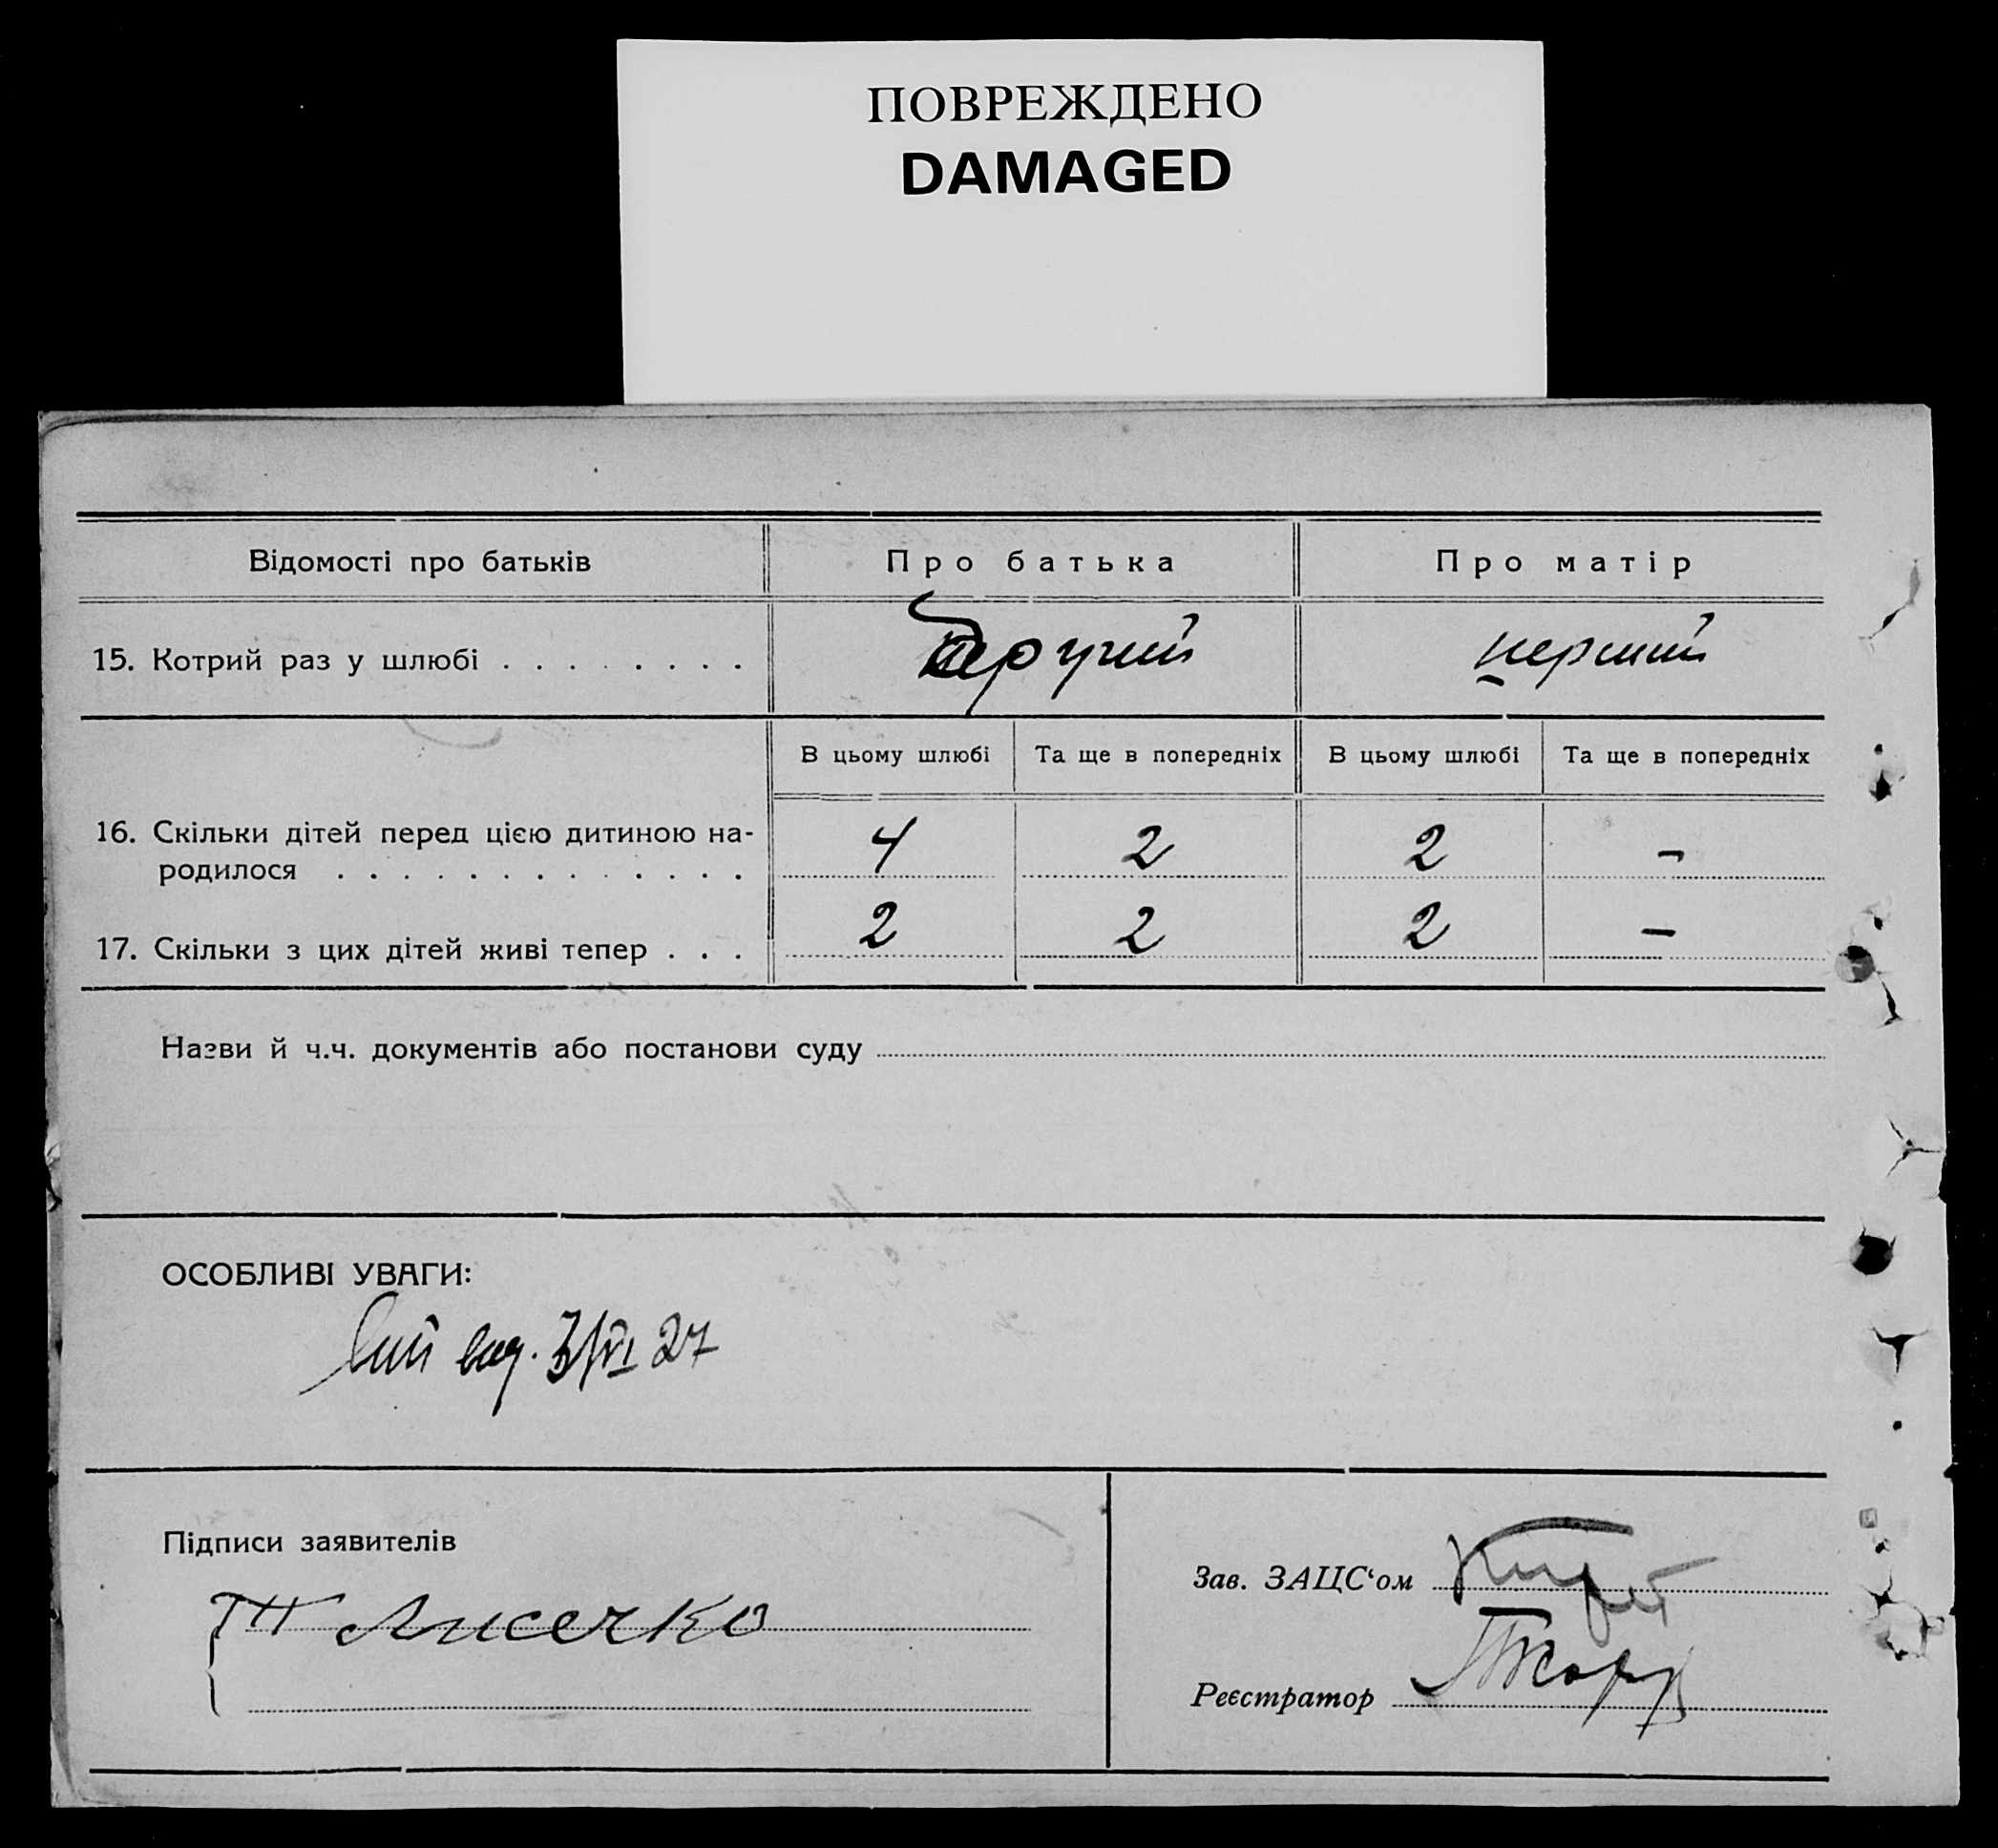 ПОВРЕЖДЕНО
DAMAGED
Відомості про батьків
Про батька
Про матір
15. Котрий раз у шлюбі . . . . . . . .
другий
перший
В цьому шлюбі
Та ще в попередніх
В цьому шлюбі
Та ще в попередніх
16. Скільки дітей перед цією дитиною на-
родилося . . . . . . . . . . . . .
4
2
2
–
17. Скільки з цих дітей живі тепер . . .
2
2
2
–
Назви й ч.ч. документів або постанови суду
ОСОБЛИВІ УВАГИ:
вид. 3/VI 27
Підписи заявителів
Лисечко
Зав. ЗАЦС'ом
Реєстратор